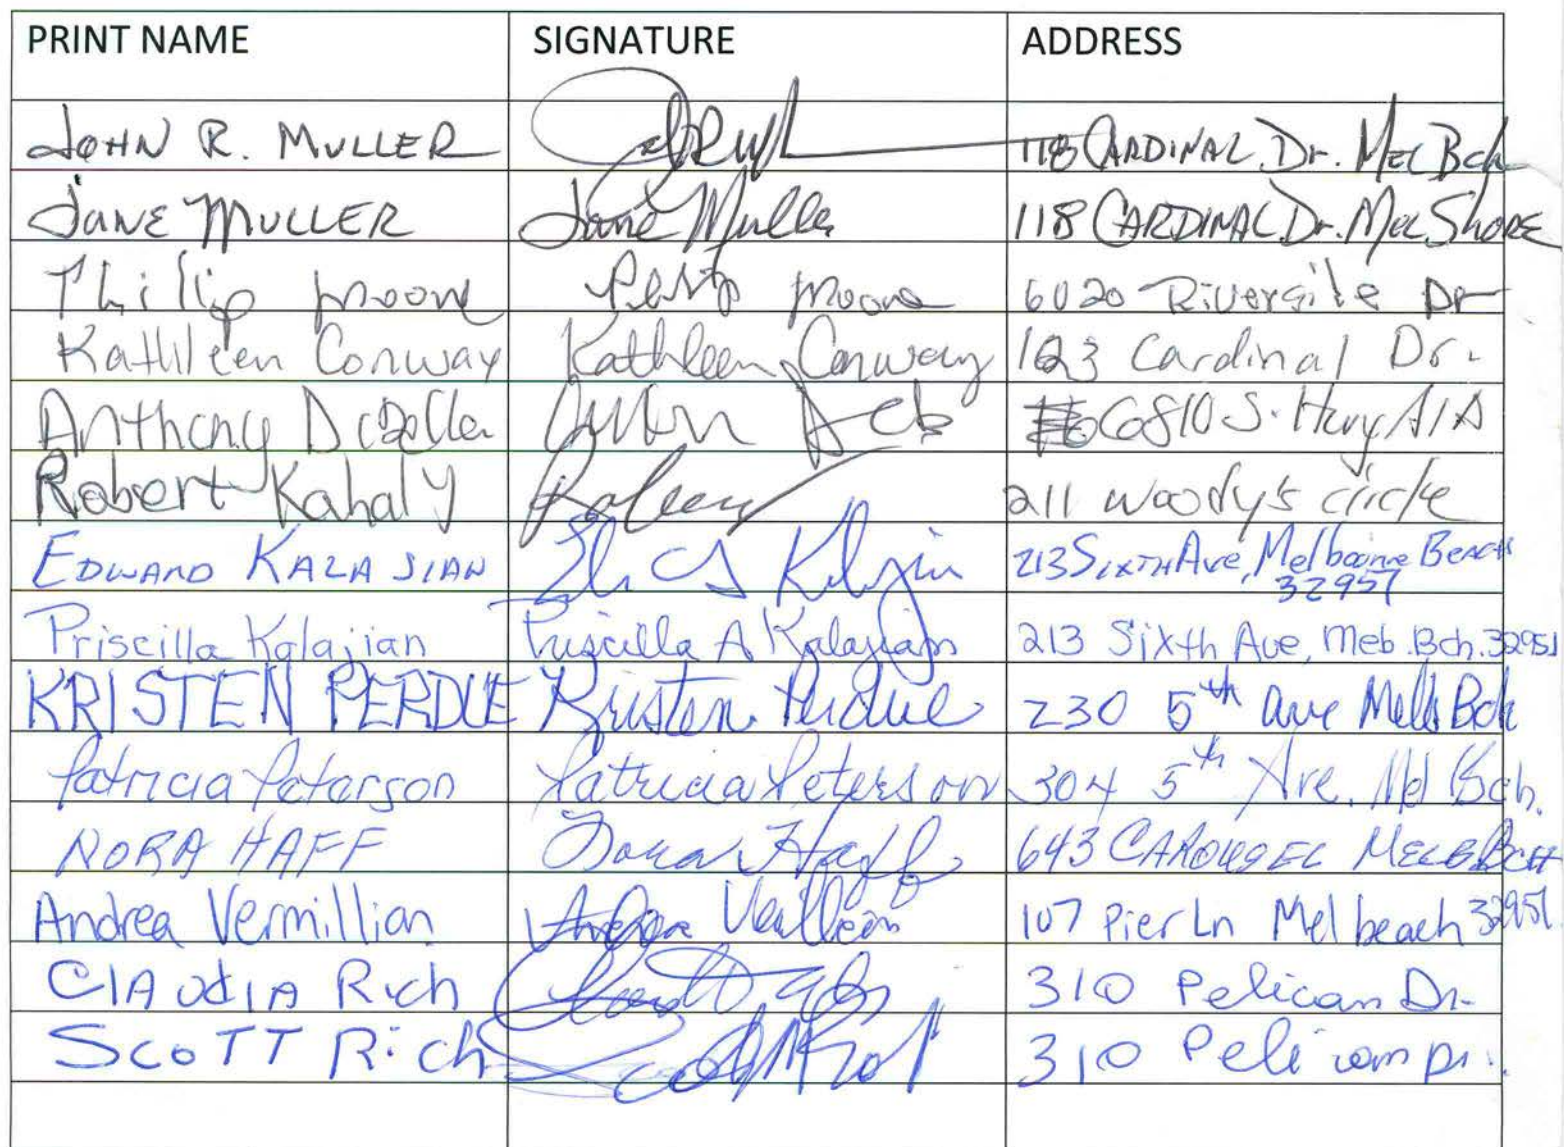 PRINT NAME SIGNATURE ADDRESS
JOHN R. MULLER 118 CARDINAL Dr. MEL Bch
JANE MULLER Jane Muller 118 CARDINAL Dr. MEL SHORE
Phillip Moore Moore 6020 Riverside Dr
Kathleen Conway Kathleen Conway 123 Cardinal Dr.
Anthony 6810 S. Hwy A1A
Robert Kahaly 211 woody's circle
EDWARD KALAJIAN 213 SIXTH Ave, Melbourne BEACH
32951
Priscilla Kalajian Priscilla A Kalajian 213 Sixth Ave, Meb. Bch. 32951
KRISTEN PERDUE Kristen Perdue 230 5th ave Melb Bch
Patricia Peterson Patricia Peterson 304 5th Ave. Mel Bch.
NORA HAFF Nora Haff 643 CAROUSEL MELB BCH
Andrea Vermillian 107 Pier Ln Mel beach 32951
ClAudIA Rich 310 Pelican Dr.
SCOTT Rich 310 Pelican Dr.